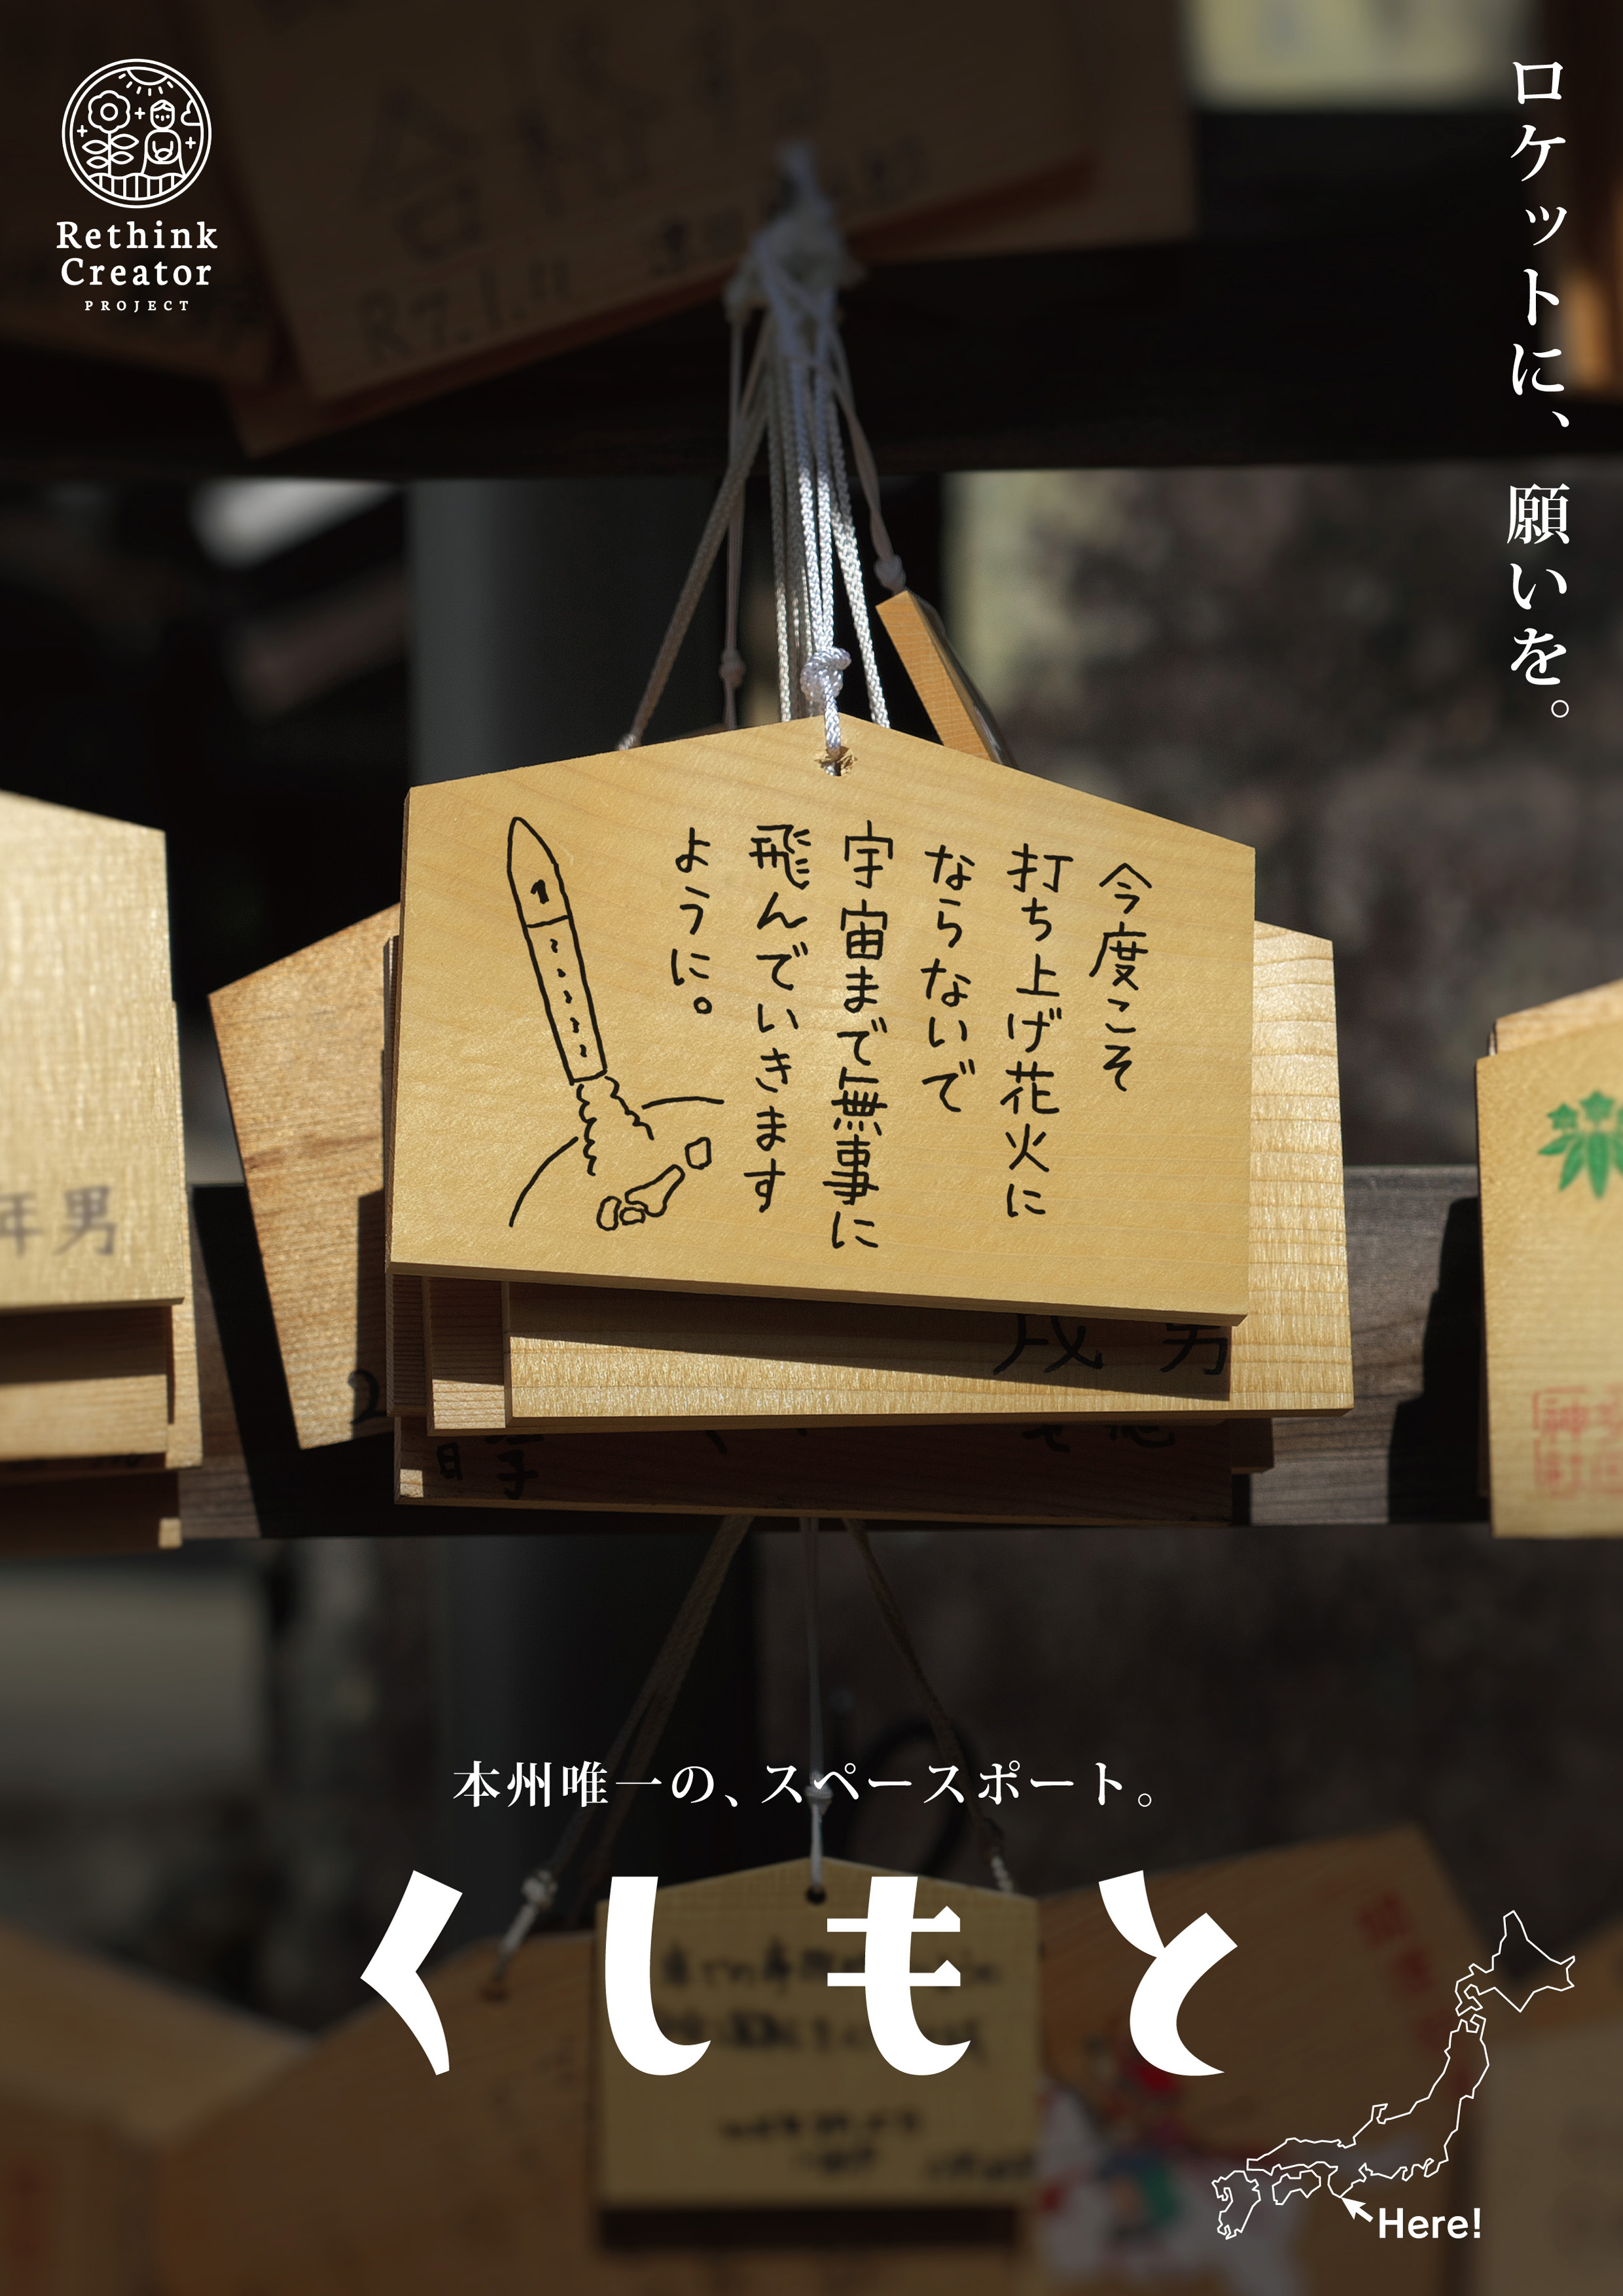 Rethink
Creator
PROJECT
ロケットに、願いを。
合格
R7.1.11
今度こそ
打ち上げ花火に
ならないで
宇宙まで無事に
飛んでいきます
ように。
1
年男
戌 男
2
本州唯一の、スペースポート。
くしもと
Here!